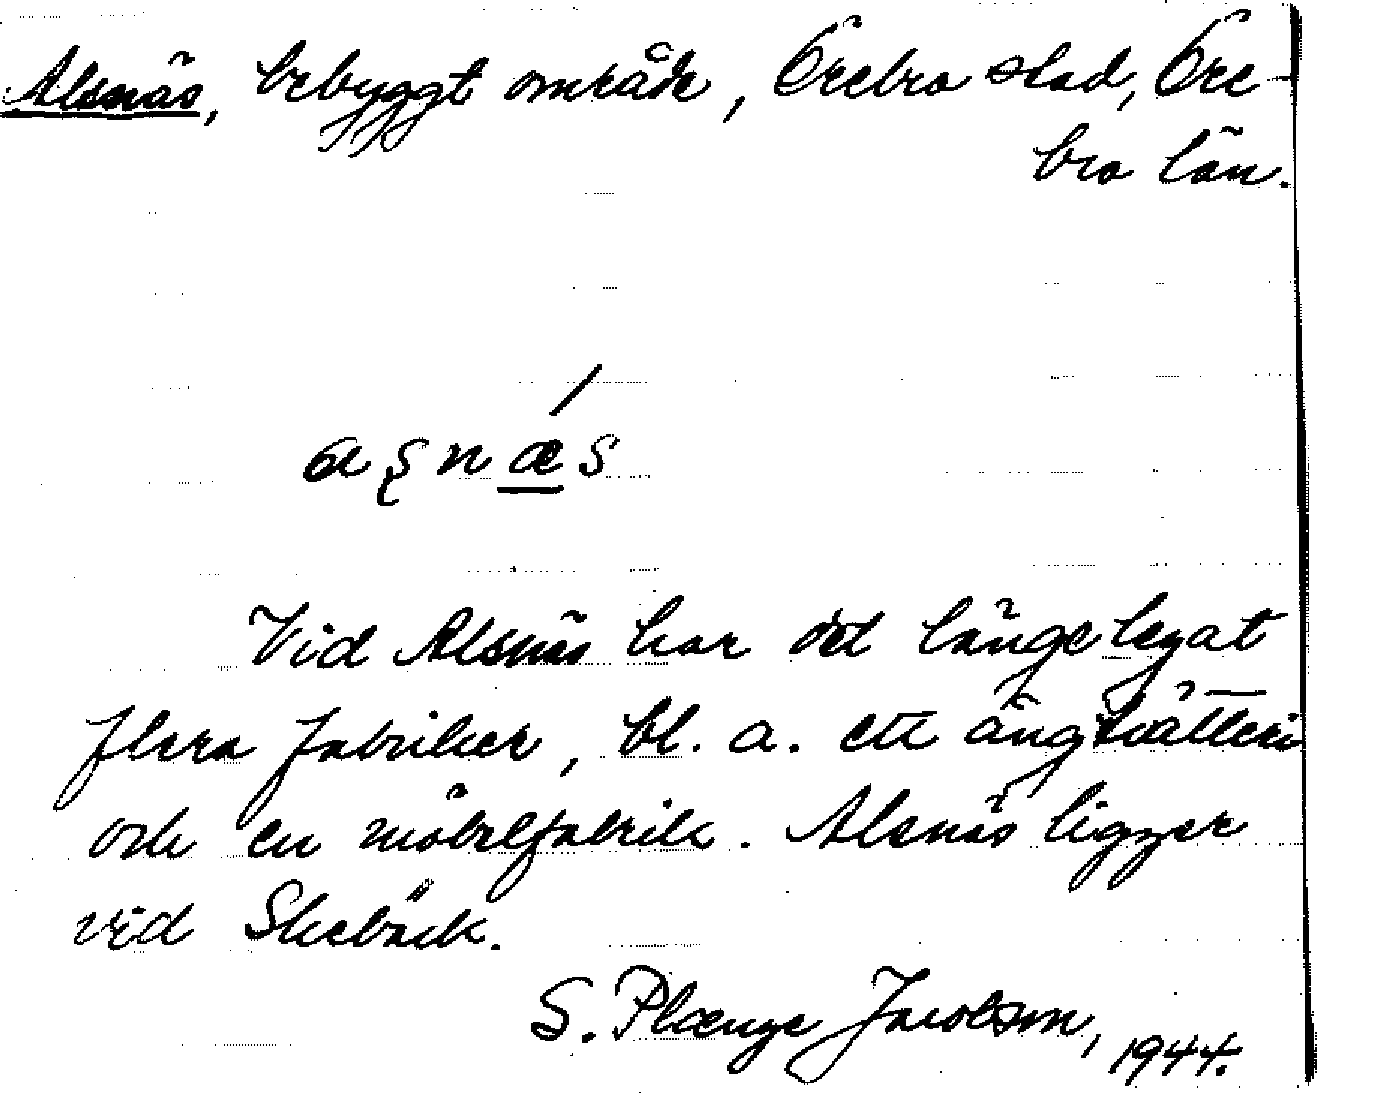 Alsnäs, bebyggt område, Örebro stad, Öre-
bro län.
aʂnǽs
Vid Alsnäs har det länge legat
flera fabriker, bl. a. ett ångtvätteri
och en möbelfabrik. Alsnäs ligger
vid Skebäck.
S. Plænge Jacobson, 1944.